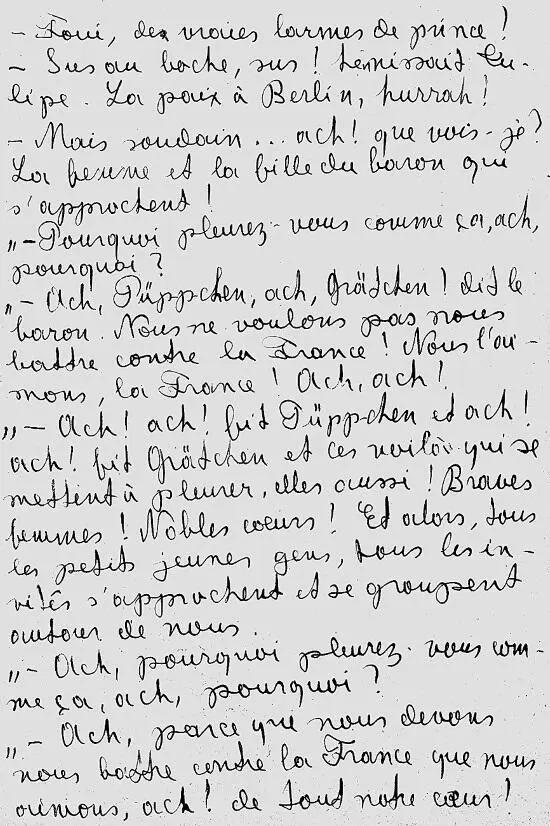 - Foui, des vraies larmes de prince !
- Sus au boche, sus ! hennissait Tu-
lipe. La paix à Berlin, hurrah !
- Mais soudain... ach! que vois-je?
La femme et la fille du baron qui
s'approchent !
„-Pourquoi pleurez-vous comme ça, ach,
pourquoi ?
„- Ach, Püppchen, ach, Grätchen ! dit le
baron. Nous ne voulons pas nous
battre contre la France ! Nous l'ai-
mons, la France ! Ach, ach !
„- Ach ! ach ! fit Püppchen et ach !
ach ! fit Grätchen et les voilà qui se
mettent à pleurer, elles aussi ! Braves
femmes ! Nobles cœurs ! Et alors, tous
les petits jeunes gens, tous les in-
vités s'approchent et se groupent
autour de nous.
„- Ach, pourquoi pleurez-vous com-
me ça, ach, pourquoi ?
„- Ach, parce que nous devons
nous battre contre la France que nous
aimons, ach! de tout notre cœur !